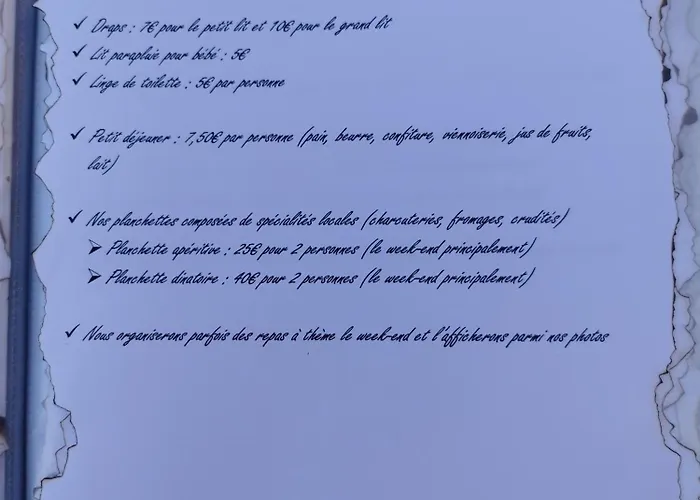 ✓ Draps : 7€ pour le petit lit et 10€ pour le grand lit
✓ Lit parapluie pour bébé : 5€
✓ Linge de toilette : 5€ par personne
✓ Petit déjeuner : 7,50€ par personne (pain, beurre, confiture, viennoiserie, jus de fruits,
lait)
✓ Nos planchettes composées de spécialités locales (charcuteries, fromages, crudités)
➢ Planchette apéritive : 25€ pour 2 personnes (le week-end principalement)
➢ Planchette dinatoire : 40€ pour 2 personnes (le week-end principalement)
✓ Nous organiserons parfois des repas à thème le week-end et l'afficherons parmi nos photos